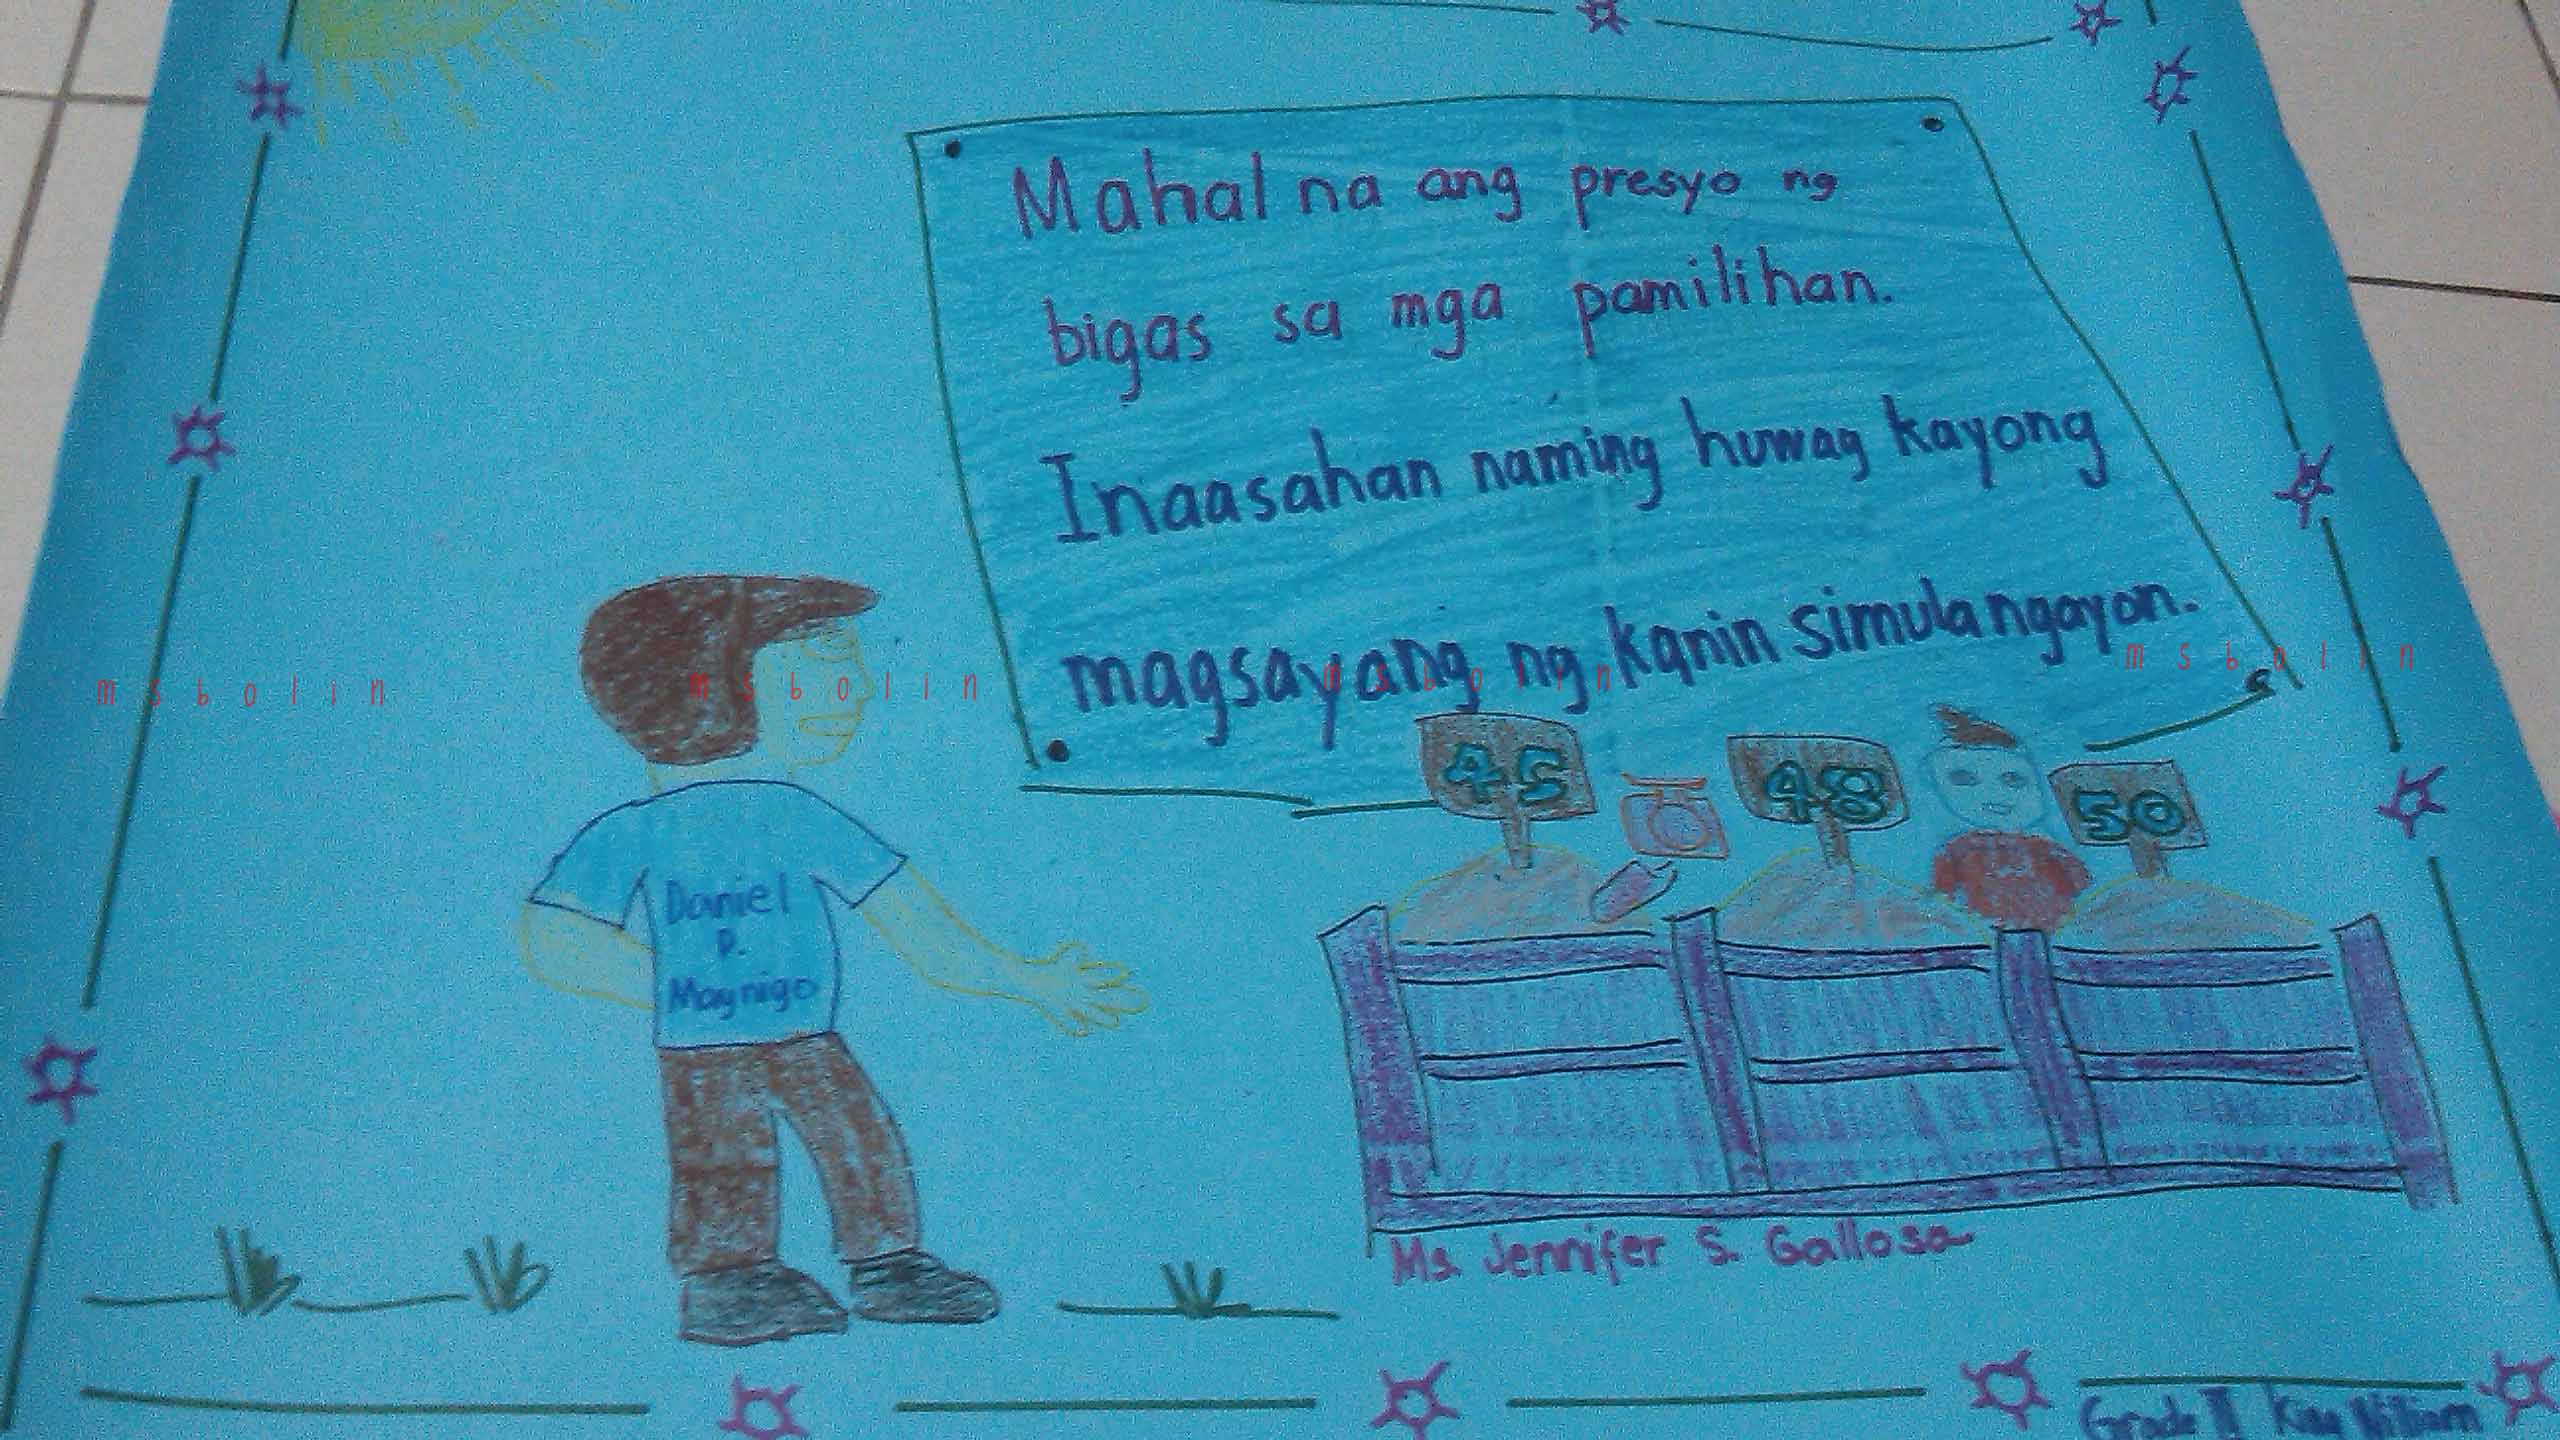 Mahal na ang presyo ng
bigas sa mga pamilihan.
Inaasahan naming huwag kayong
magsayang ng kanin simula ngayon.
msbolin msbolin msbolin msbolin
45 48 50
Daniel
P.
Maynigo
Ms. Jennifer S. Gallosa
Grade II